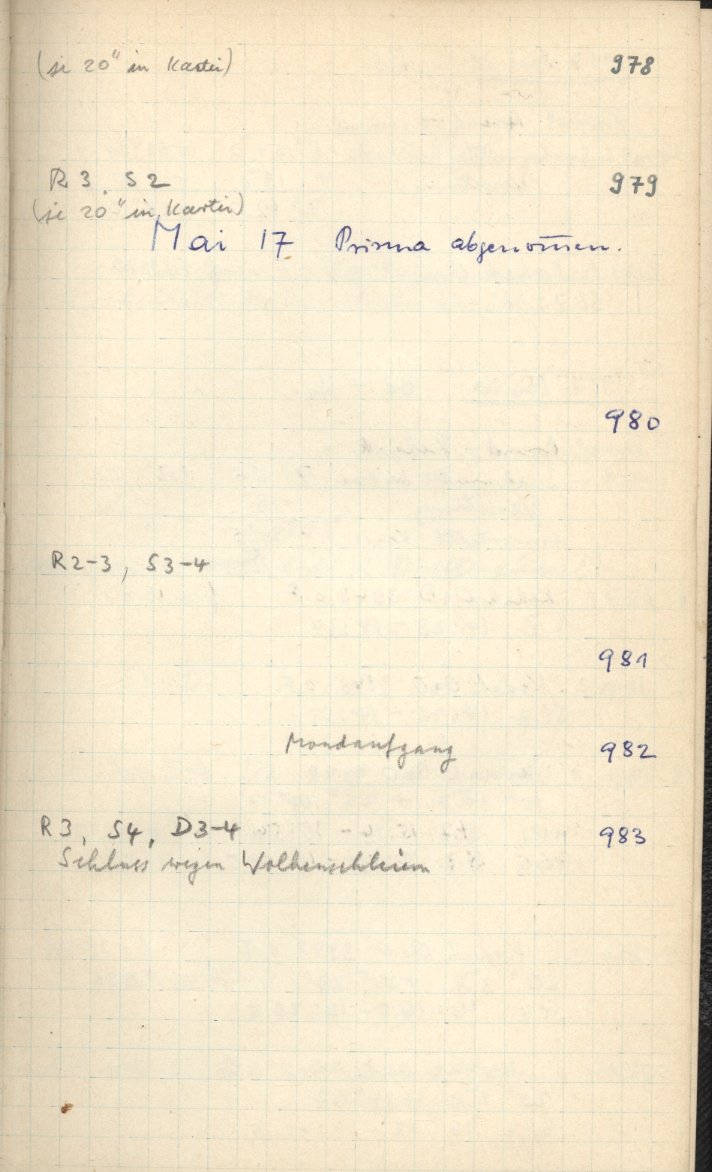 (je 20" in Kartei) 978
R 3, S 2 979
(je 20" in Kartei)
Mai 17 Prisma abgenom̄en.
980
R2-3, S3-4
981
Mondaufgang 982
R3, S4, D3-4 983
Schluss wegen Wolkenschleiern